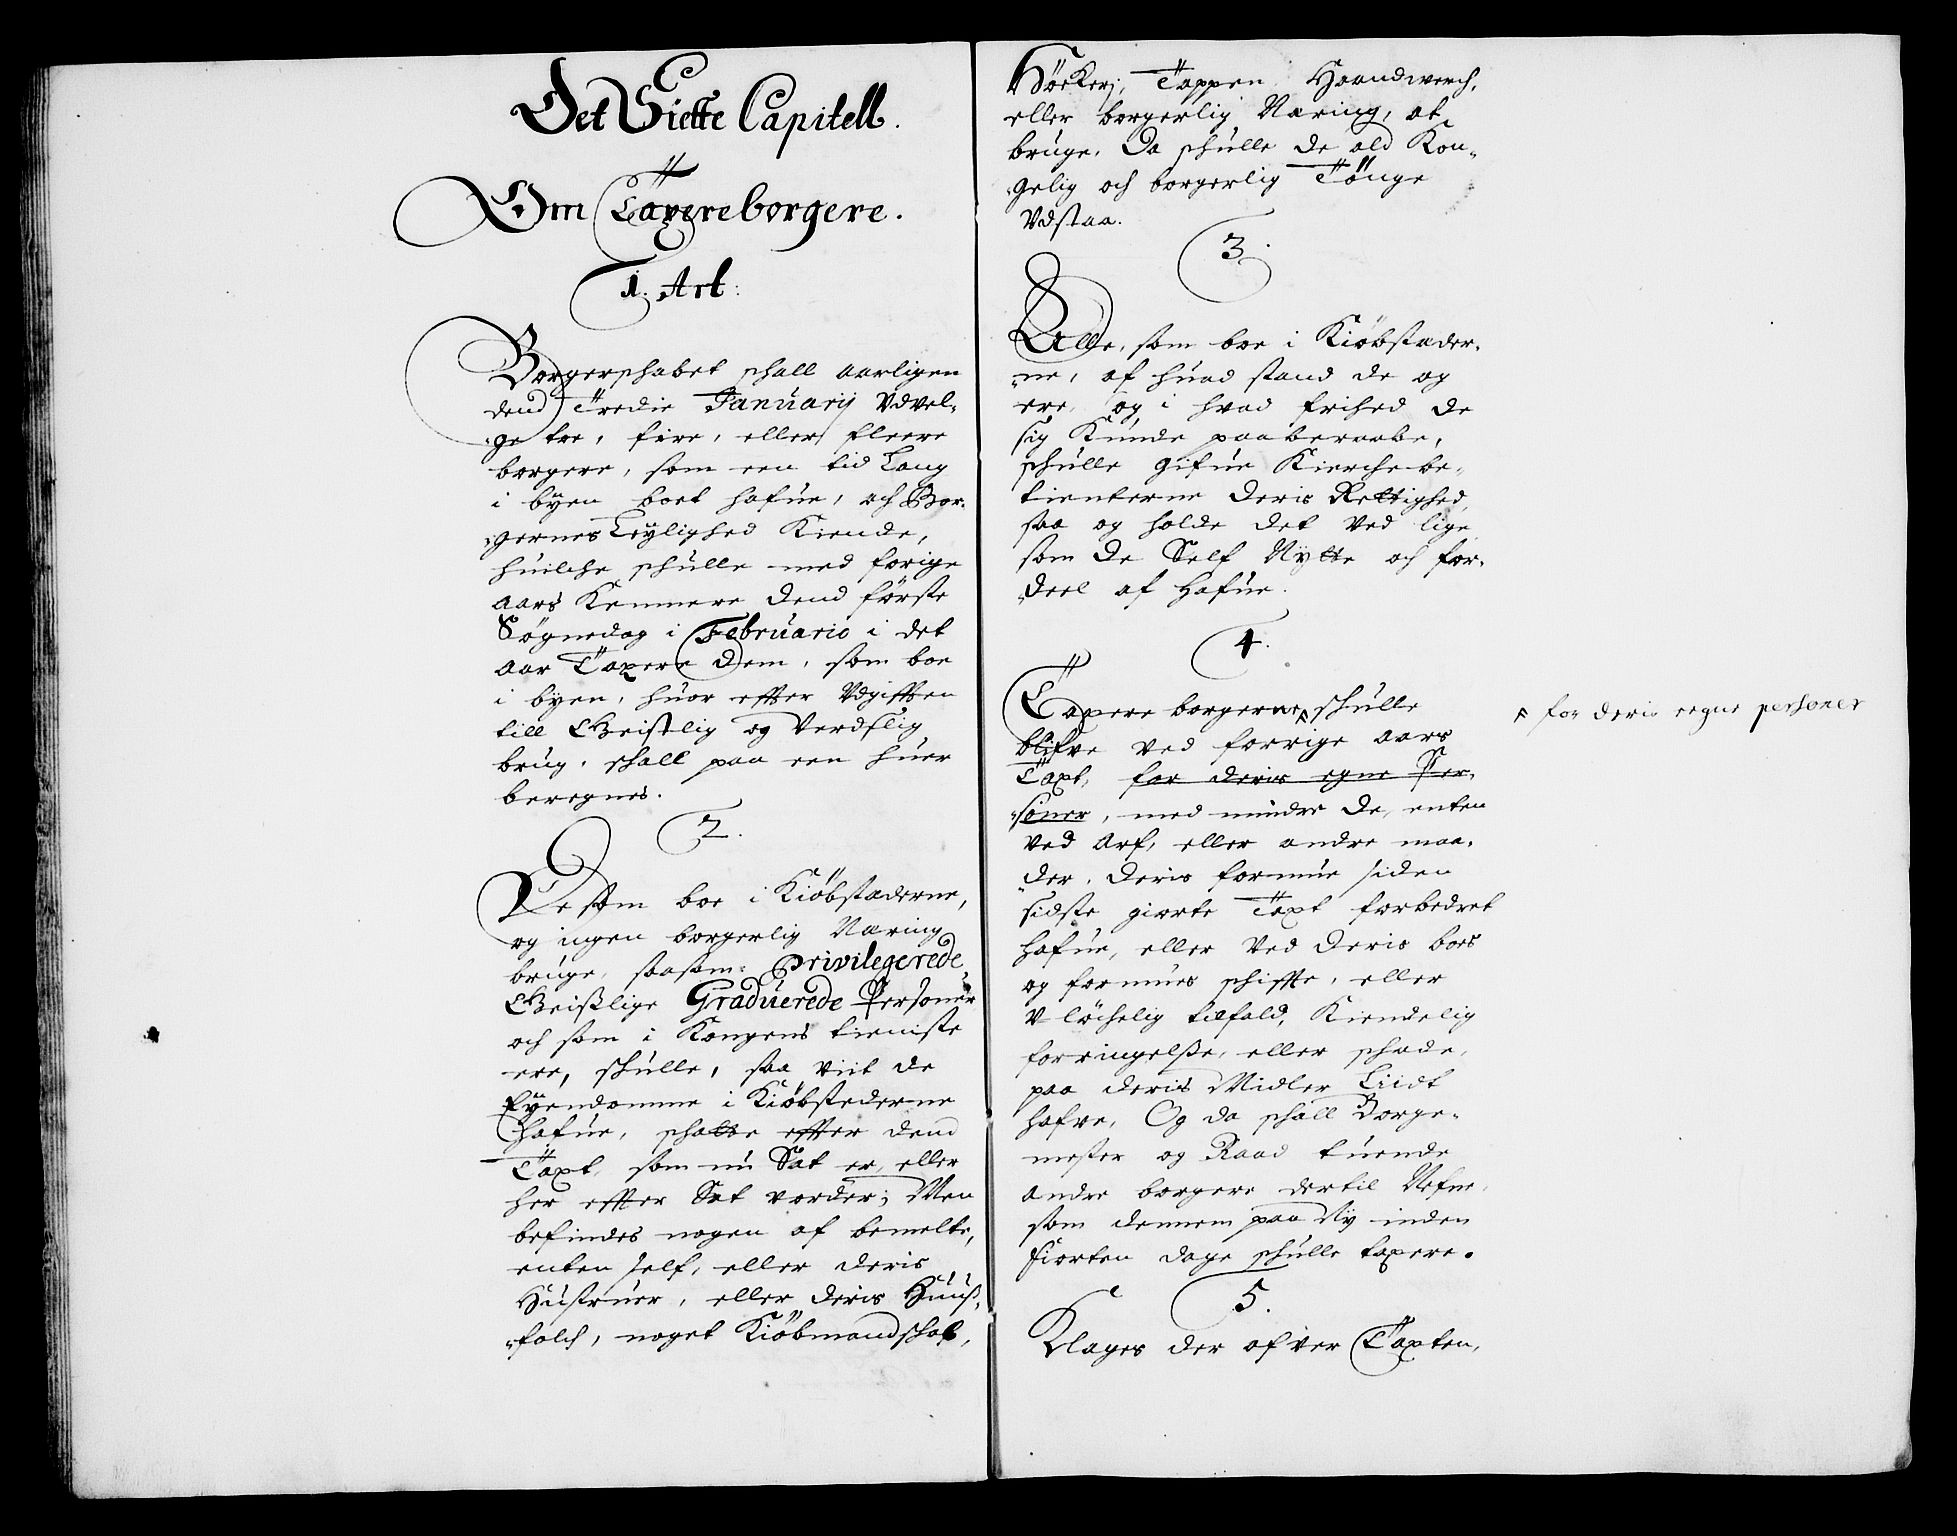 Det Siette Capitell.
Om Taxereborgere.
1. Art:
Borgerschabet schall aarligen
dend Tredie Januarij Udvel-
ge tre, fire, eller fleere
borgere, som een tid Lang
i byen boet hafue, och Bor-
gernes Leylighed Kiende,
huilche schulle med forige
aars Kemnere dend förste
Sögnedag i Februario i det
aar Taxere dem, som boe
i byen, huor effter Udgifften
till Geistlig og Verdslig
brug, schall paa een huer
beregnes.
2.
De som boe i Kiöbstæderne,
og ingen borgerlig Næring
bruge, saasom: Privilegerede
Geistlige Graduerede Personer
och som i Kongens tieniste
ere, schulle, saa viit de
Eyendomme i Kiöbstederne
hafue, schatte effter dend
Taxt, som nu Sat er, eller
her effter Sat vorder; Men
befindes nogen af bemelte,
enten self, eller deris
Hustruer, eller deris Huuß-
folch, noget Kiöbmandschab,
Hökerj, Tappen, Haandwerch,
eller borgerlig Næring, at
bruge, Da schulle de ald Kon-
gelig och borgerlig Tönge
Udstaa.
3.
Alle, som boe i Kiöbstæder-
ne, af huad stand de og
ere, og i hvad frihed de
sig Kunde paaberaabe,
schulle gifue Kierchebe-
tienterne deris Rettighed,
saa og holde det ved lige,
som de Self Nytte och for-
deel af hafue.
4.
Taxereborgerne schulle
for deris eegne personer
blifve ved forrige aars
Taxt, for deris egne Per-
soner, med mindre de, enten
ved Arf, eller andre maa-
der, deris formue siden
sidste giorte Taxt forbedret
hafue, eller ved deris boes
og formues schiffte, eller
Ulöchelig tilfald, Kiendelig
forringelße, eller schade,
paa deris Midler Liidt
hafve, Og da schall Borge-
mester og Raad tuende
andre borgere dertil Nefne,
som dennem paa Ny inden
fiorten dage schulle taxere.
5.
Klages der ofver Taxten,